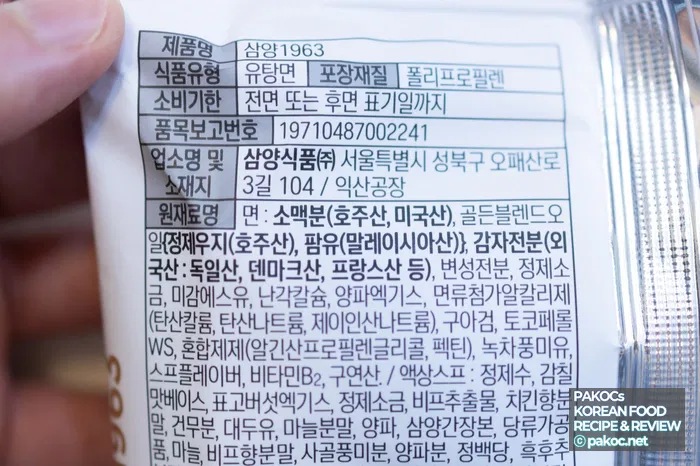 제품명 삼양1963
식품유형 유탕면 포장재질 폴리프로필렌
소비기한 전면 또는 후면 표기일까지
품목보고번호 19710487002241
업소명 및 소재지 삼양식품㈜ 서울특별시 성북구 오패산로
3길 104 / 익산공장
원재료명 면 : 소맥분(호주산, 미국산), 골든블렌드오
일{정제우지(호주산), 팜유(말레이시아산)}, 감자전분(외
국산 : 독일산, 덴마크산, 프랑스산 등), 변성전분, 정제소
금, 미감에스유, 난각칼슘, 양파엑기스, 면류첨가알칼리제
(탄산칼륨, 탄산나트륨, 제이인산나트륨), 구아검, 토코페롤
WS, 혼합제제(알긴산프로필렌글리콜, 펙틴), 녹차풍미유,
스프플레이버, 비타민B₂, 구연산. / 액상스프 : 정제수, 감칠
맛베이스, 표고버섯엑기스, 정제소금, 비프추출물, 치킨향분
말, 건무분, 대두유, 마늘분말, 양파, 삼양간장본, 당류가공
품, 마늘, 비프향분말, 사골풍미분, 양파분, 정백당, 흑후추
963
PAKOCs
KOREAN FOOD
RECIPE & REVIEW
© pakoc.net